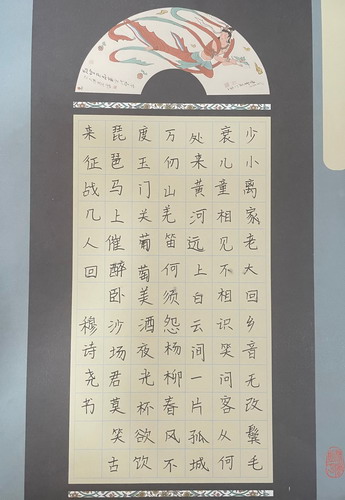 少小离家老大回乡音无改鬓毛
衰儿童相见不相识笑问客从何
处来黄河远上白云间一片孤城
万仞山羌笛何须怨杨柳春风不
度玉门关葡萄美酒夜光杯欲饮
琵琶马上催醉卧沙场君莫笑古
来征战几人回 穆诗尧书